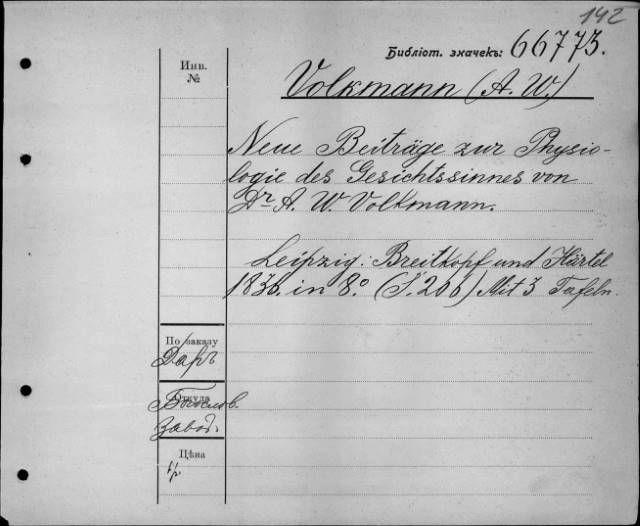 142
Библіот. значекъ: 66773.
Инв.
№
Volkmann (A. W.)
Neue Beiträge zur Physio-
logie des Gesichtssinnes von
Dr A. W. Volkmann.
Leipzig: Breitkopf und Härtel
1836. in 8.° (S. 206) Mit 3 Tafeln.
По заказу
Даръ
Откуда
Богослов.
Завод.
Цѣна